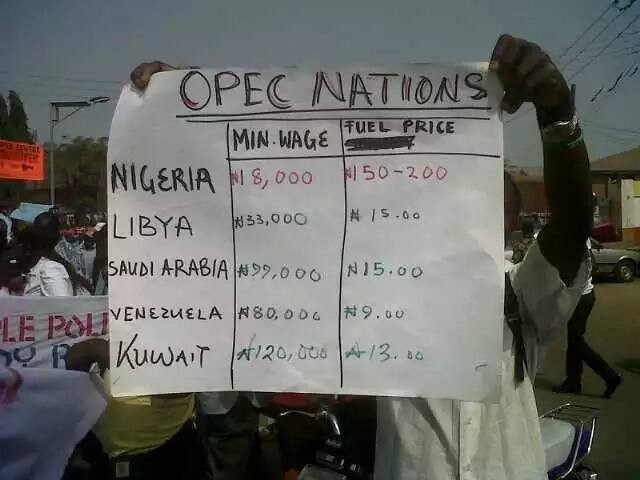 OPEC NATIONS
MIN. WAGE FUEL PRICE
NIGERIA ₦18,000 ₦150-200
LIBYA ₦33,000 ₦15.00
SAUDI ARABIA ₦99,000 ₦15.00
VENEZUELA ₦80,000 ₦9.00
KUWAIT ₦120,000 ₦13.00
PLE POLI